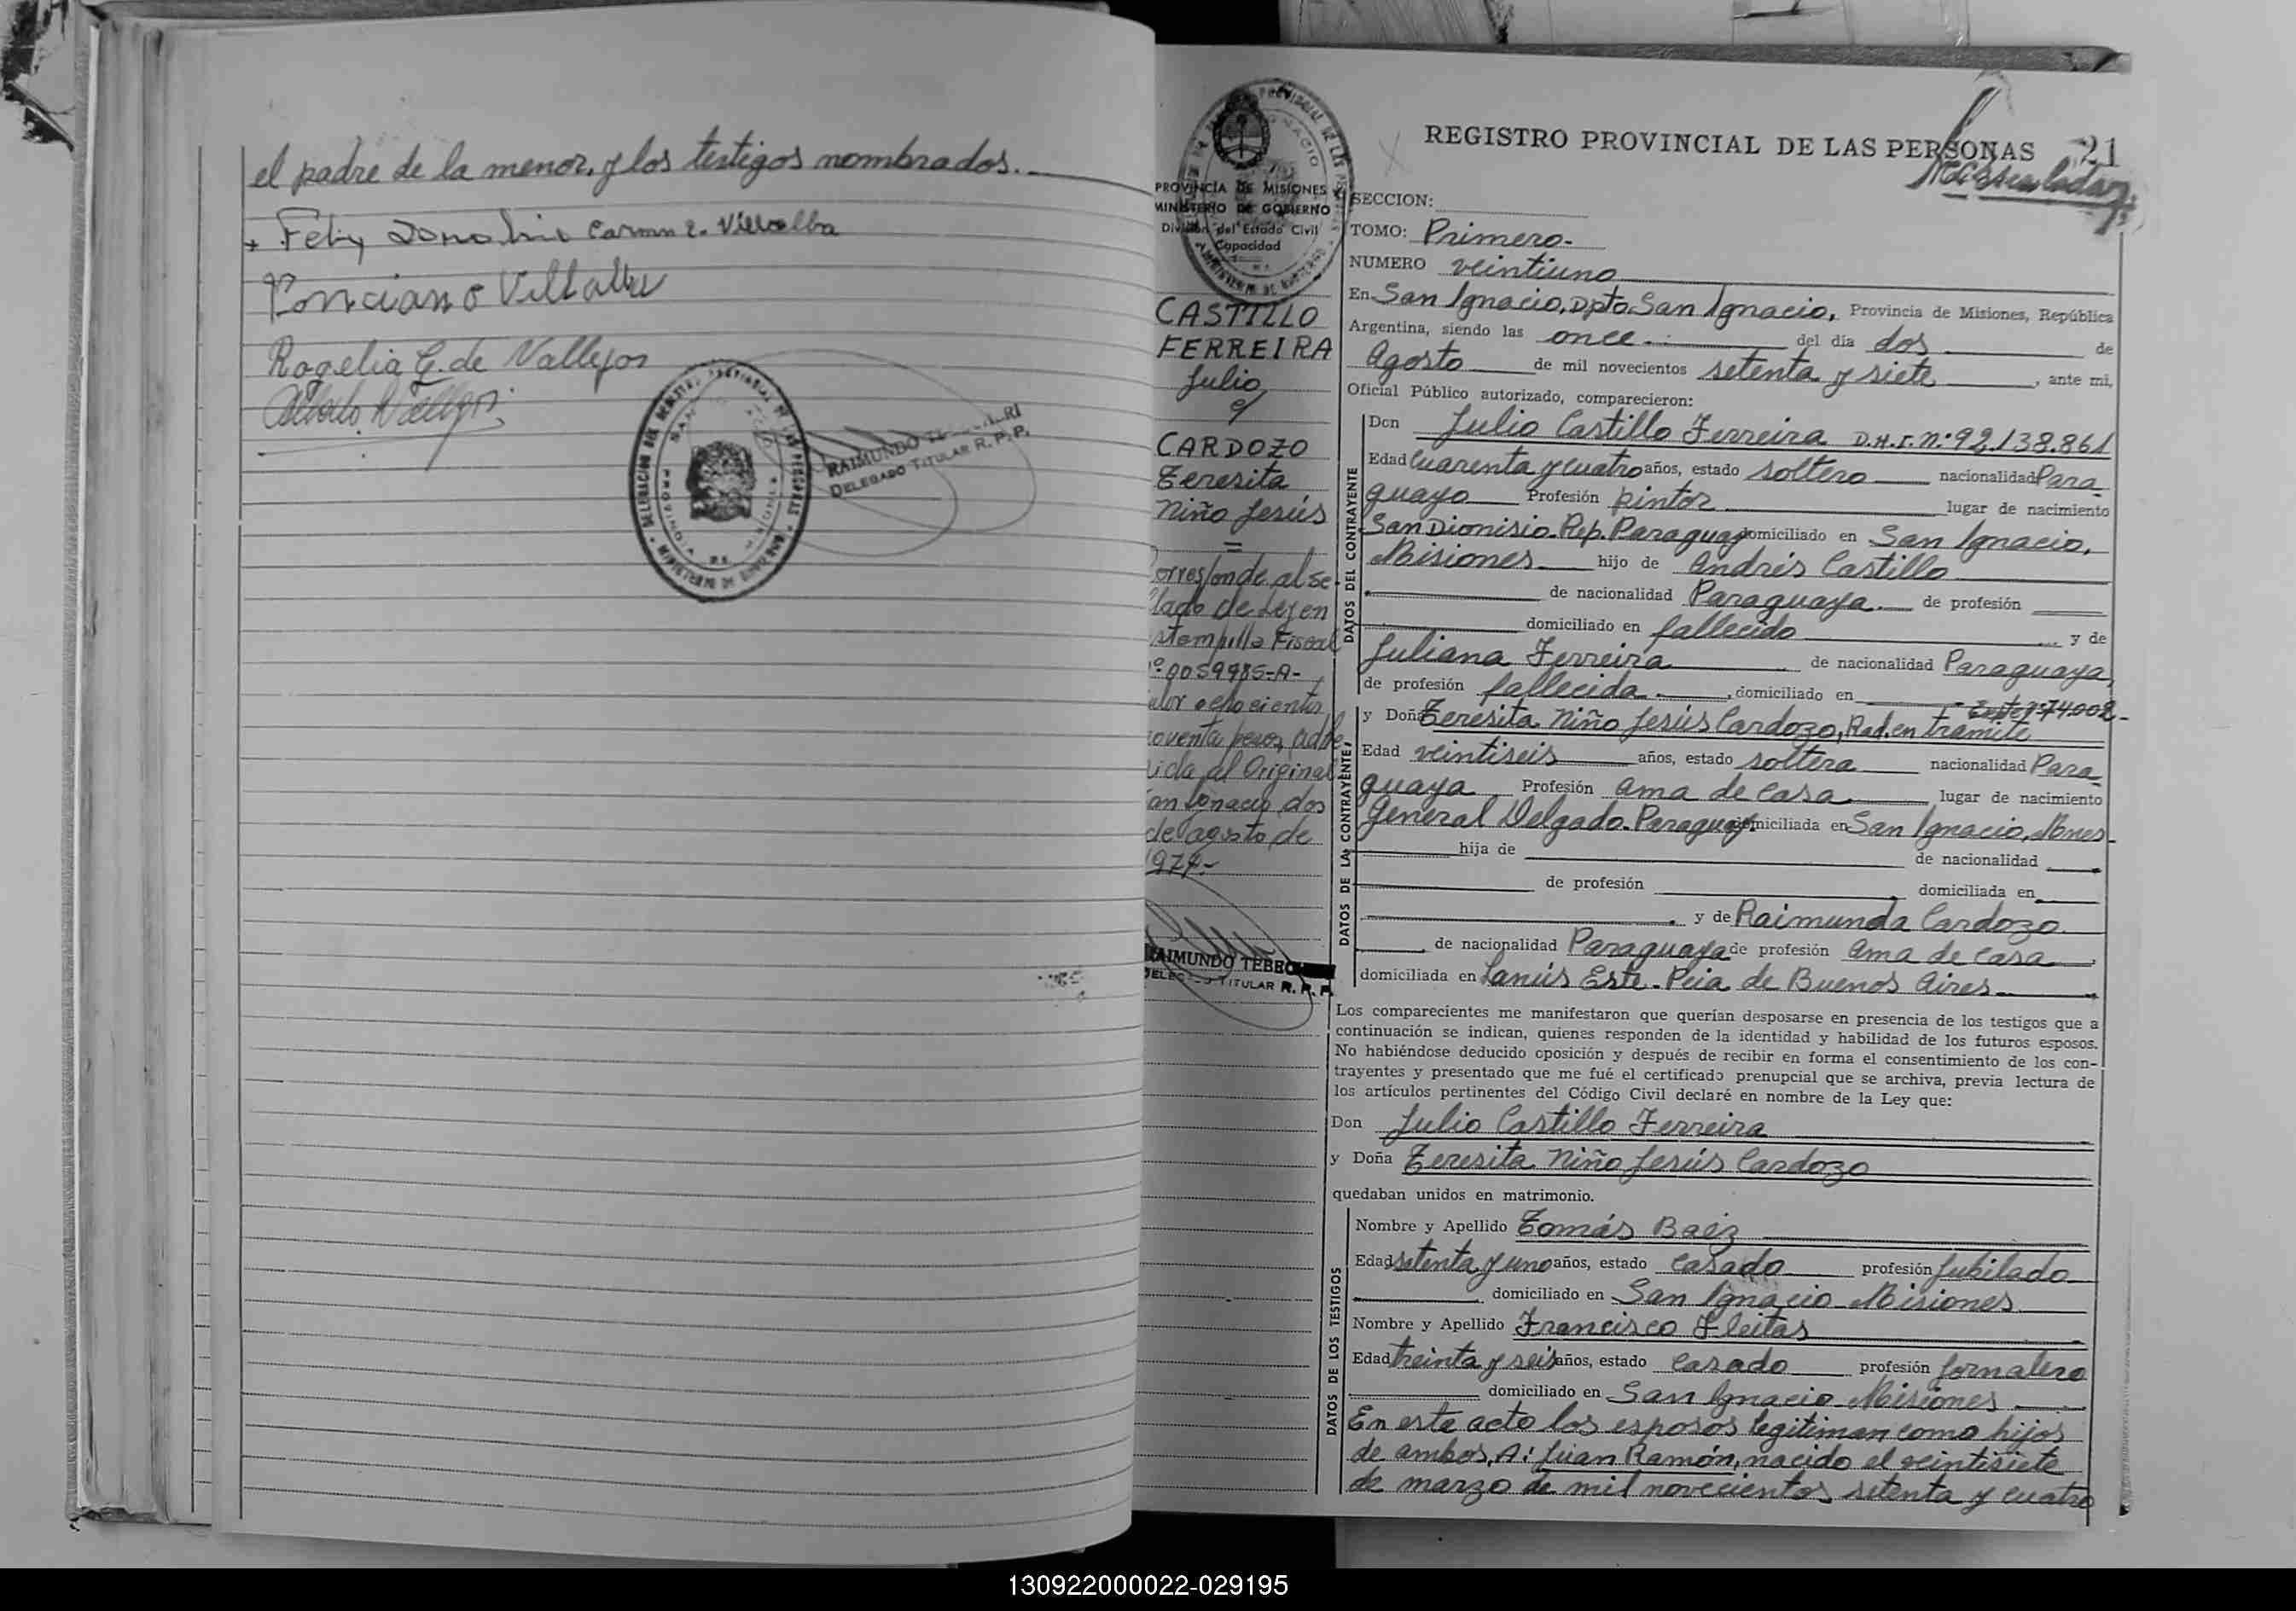 el padre de la menor, y los testigos nombrados.
Carmen E. Villalba
Ponciano Villalba
Rogelia G. de Vallejos
RAIMUNDO
DELEGADO TITULAR R.P.P.
REGISTRO PROVINCIAL DE LAS PERSONAS 21
PROVINCIA DE MISIONES
MINISTERIO DE GOBIERNO
División del Estado Civil
y Capacidad
CASTILLO
FERREIRA
Julio
c/
CARDOZO
Teresita
Niño Jesús
=
Corresponde al se-
llado de Ley en
estampilla Fiscal
nº 0059985-A-
valor ochocientos
noventa pesos, adhe
rida al Original
San Ignacio dos
de agosto de
1977.-
RAIMUNDO
DELEGADO TITULAR R. P. P.
SECCION:
TOMO: Primero.-
NUMERO veintiuno
En San Ignacio, Dpto. San Ignacio, Provincia de Misiones, República
Argentina, siendo las once.- del día dos de
Agosto de mil novecientos setenta y siete, ante mi,
Oficial Público autorizado, comparecieron:
DATOS DEL CONTRAYENTE
Don Julio Castillo Ferreira D.N.I. Nº 92.138.861
Edad Cuarenta y cuatro años, estado soltero nacionalidad Para
guayo Profesión pintor lugar de nacimiento
San Dionisio-Rep. Paraguay domiciliado en San Ignacio,
Misiones hijo de Andrés Castillo
de nacionalidad Paraguaya.- de profesión
domiciliado en fallecido y de
Juliana Ferreira de nacionalidad Paraguaya,
de profesión fallecida.-, domiciliado en
Expte 274.002-
DATOS DE LA CONTRAYENTE
y Doña Teresita Niño Jesús Cardozo, Rad. en trámite
Edad veintiseis años, estado soltera nacionalidad Para
guaya Profesión ama de casa lugar de nacimiento
General Delgado-Paraguay domiciliada en San Ignacio, Mnes-
hija de de nacionalidad
de profesión domiciliada en
y de Raimunda Cardozo
de nacionalidad Paraguaya de profesión ama de casa,
domiciliada en Lanús Este-Pcia de Buenos Aires
Los comparecientes me manifestaron que querían desposarse en presencia de los testigos que a
continuación se indican, quienes responden de la identidad y habilidad de los futuros esposos.
No habiéndose deducido oposición y después de recibir en forma el consentimiento de los con-
trayentes y presentado que me fué el certificado prenupcial que se archiva, previa lectura de
los artículos pertinentes del Código Civil declaré en nombre de la Ley que:
Don Julio Castillo Ferreira
y Doña Teresita Niño Jesús Cardozo
quedaban unidos en matrimonio.
DATOS DE LOS TESTIGOS
Nombre y Apellido Tomás Baéz
Edad setenta y uno años, estado casado profesión Jubilado
domiciliado en San Ignacio-Misiones
Nombre y Apellido Francisco Fleitas
Edad treinta y seis años, estado casado profesión jornalero
domiciliado en San Ignacio-Misiones
En este acto los esposos legitiman como hijos
de ambos, A: Juan Ramón, nacido el veintisiete
de marzo de mil novecientos setenta y cuatro
130922000022-029195